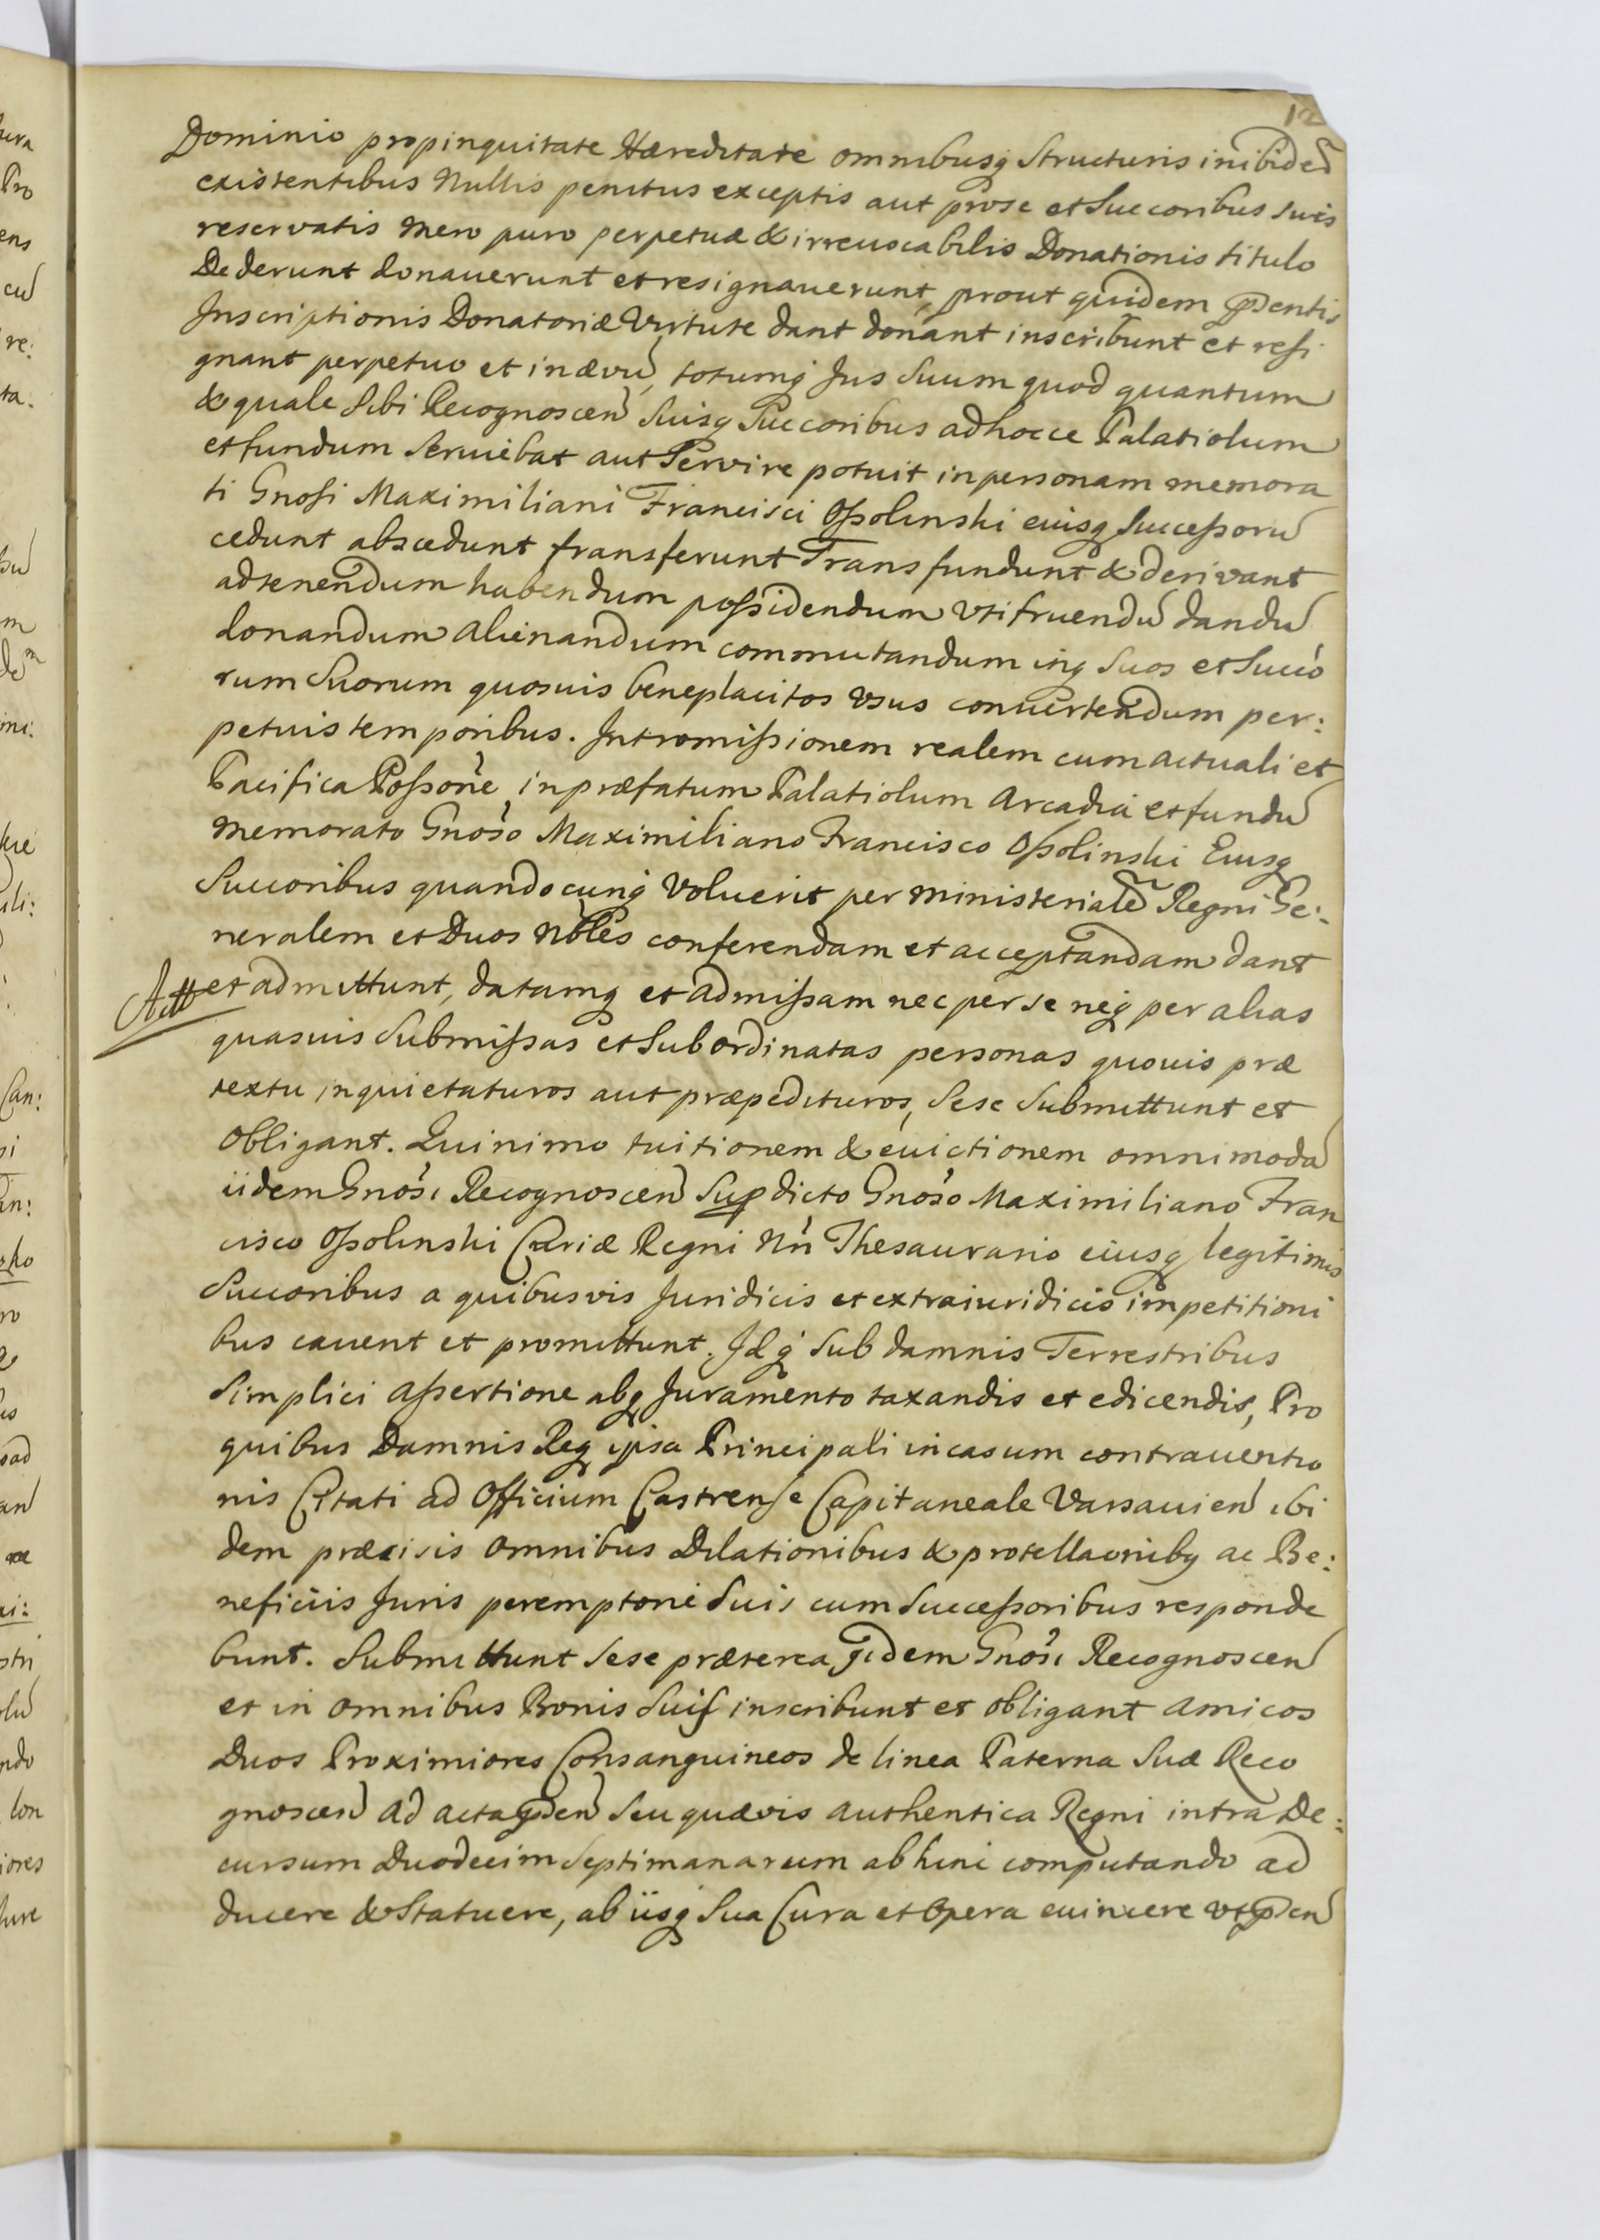 12
Dominio propinquitate Hæreditate omnibusq structuris inibidem
existentibus Nullis penitus exceptis aut prose et Succoribus suis
reservatis mero puro perpetuæ & irreuocabilis Donationis titulo
Dederunt donauerunt et resignauerunt, prout quidem pñtis
Inscriptionis Donatoriæ Virtute dant donant inscribunt et resi
gnant perpetuo et inævũ, totumq Jus Suum quod quantum
& quale Sibi Recognoscen Suisq Succoribus adhocce Palatiolum
et fundum Seruiebat aut Servire potuit inpersonam memora
ti Gnosi Maximiliani Francisci Oßolinski eiusq Succeßorũ
cedunt abscedunt transferunt Transfundunt & derivant
adtenendum habendum poßidendum Vtifruendũ dandũ
donandum alienandum commutandum inq Suos et Succo
rum Suorum quosuis beneplacitos Vsus conuertendum per:
petuis temporibus. Intromißionem realem cum actuali et
Pacifica Poßone, inpræfatum Palatiolum Arcadia et fundũ
memorato Gnoso Maximiliano Francisco Oßolinski Eiusq
Succoribus quandocunq Voluerit per ministerialẽ Regni Ge:
neralem et Duos Nobles conferendam et acceptandam dant
et admittunt, datamq et admißam nec per se neq per alias
quasuis Submißas et Subordinatas personas quouis præ
textu inquietaturos aut præpedituros, Sese Submittunt et
Obligant. Quinimo tuitionem & euictionem omnimodã
iidem Gnosi Recognoscen Supdicto Gnoso Maximiliano Fran
cisco Oßolinski Curiæ Regni Nri Thesaurario eiusq legitimis
Succoribus a quibusvis Juridicis et extraiuridicis impetitioni
bus cauent et promittunt. Idq Sub damnis Terrestribus
Simplici aßertione absq Juramento taxandis et edicendis, Pro
quibus Damnis Req ipsa Principali incasum contrauentio
nis Citati ad Officium Castrense Capitaneale Varsauien ibi
dem præcisis omnibus Dilationibus & protellaonibq ac Be:
neficiis Juris peremptorie Suis cum Succeßoribus responde
bunt. Submittunt Sese præterea iidem Gnosi Recognoscen
et in omnibus Bonis Suis inscribunt et obligant amicos
Duos Proximiores Consanguineos de linea Paterna Suæ Reco
gnoscen ad acta pñn Seu quævis authentica Regni intra De:
cursum Duodecim Septimanarum abhinc computando ad
ducere & Statuere, ab iisq Sua Cura et Opera euincere vt pñn